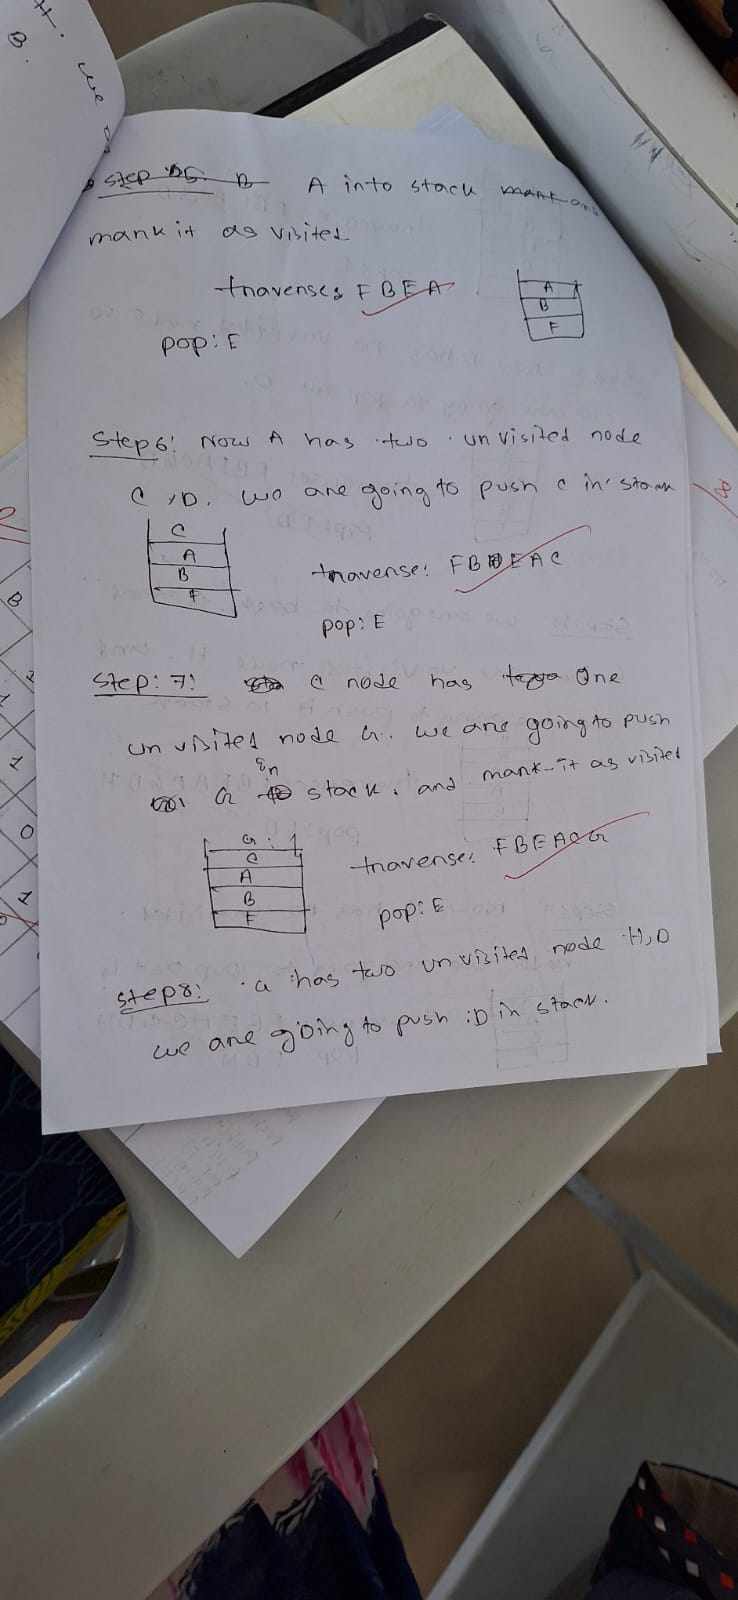 H.
we
B.
step 05. B A into stack mark and
mark it as visited
traverse: F B E A
A
B
F
pop: E
Step 6: Now A has two unvisited node
C, D. we are going to push C in stack
C
A
B
F
traverse: F B E A C
pop: E
Step: 7: C node has one
unvisited node G. we are going to push
in
G stack. and mark it as visited
G
C
A
B
F
traverse: F B E A C G
pop: E
step 8: G has two unvisited node H, D
we are going to push D in stack.
B
1
0
1